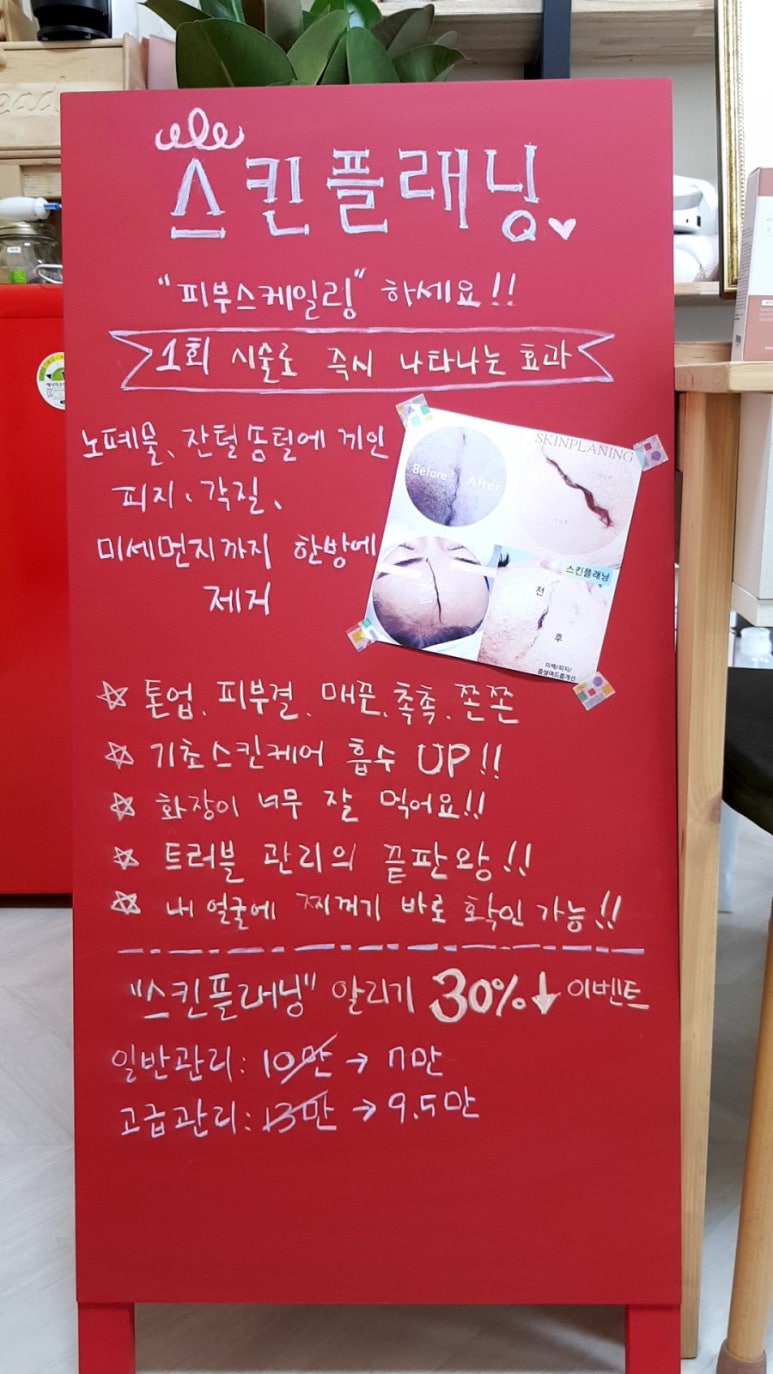 스킨플래닝♡
"피부스케일링" 하세요!!
1회 시술로 즉시 나타나는 효과
노폐물、잔털솜털에 끼인
피지、각질、
미세먼지까지 한방에
제거
SKINPLANING
Before
After
스킨플래닝
전
후
☆ 톤업、피부결、매끈、촉촉、쫀쫀
☆ 기초스킨케어 흡수 UP!!
☆ 화장이 너무 잘 먹어요!!
☆ 트러블 관리의 끝판왕!!
☆ 내 얼굴에 찌꺼기 바로 확인 가능!!
"스킨플래닝" 알리기 30%↓ 이벤트
일반관리: 10만 → 7만
고급관리: 13만 → 9.5만